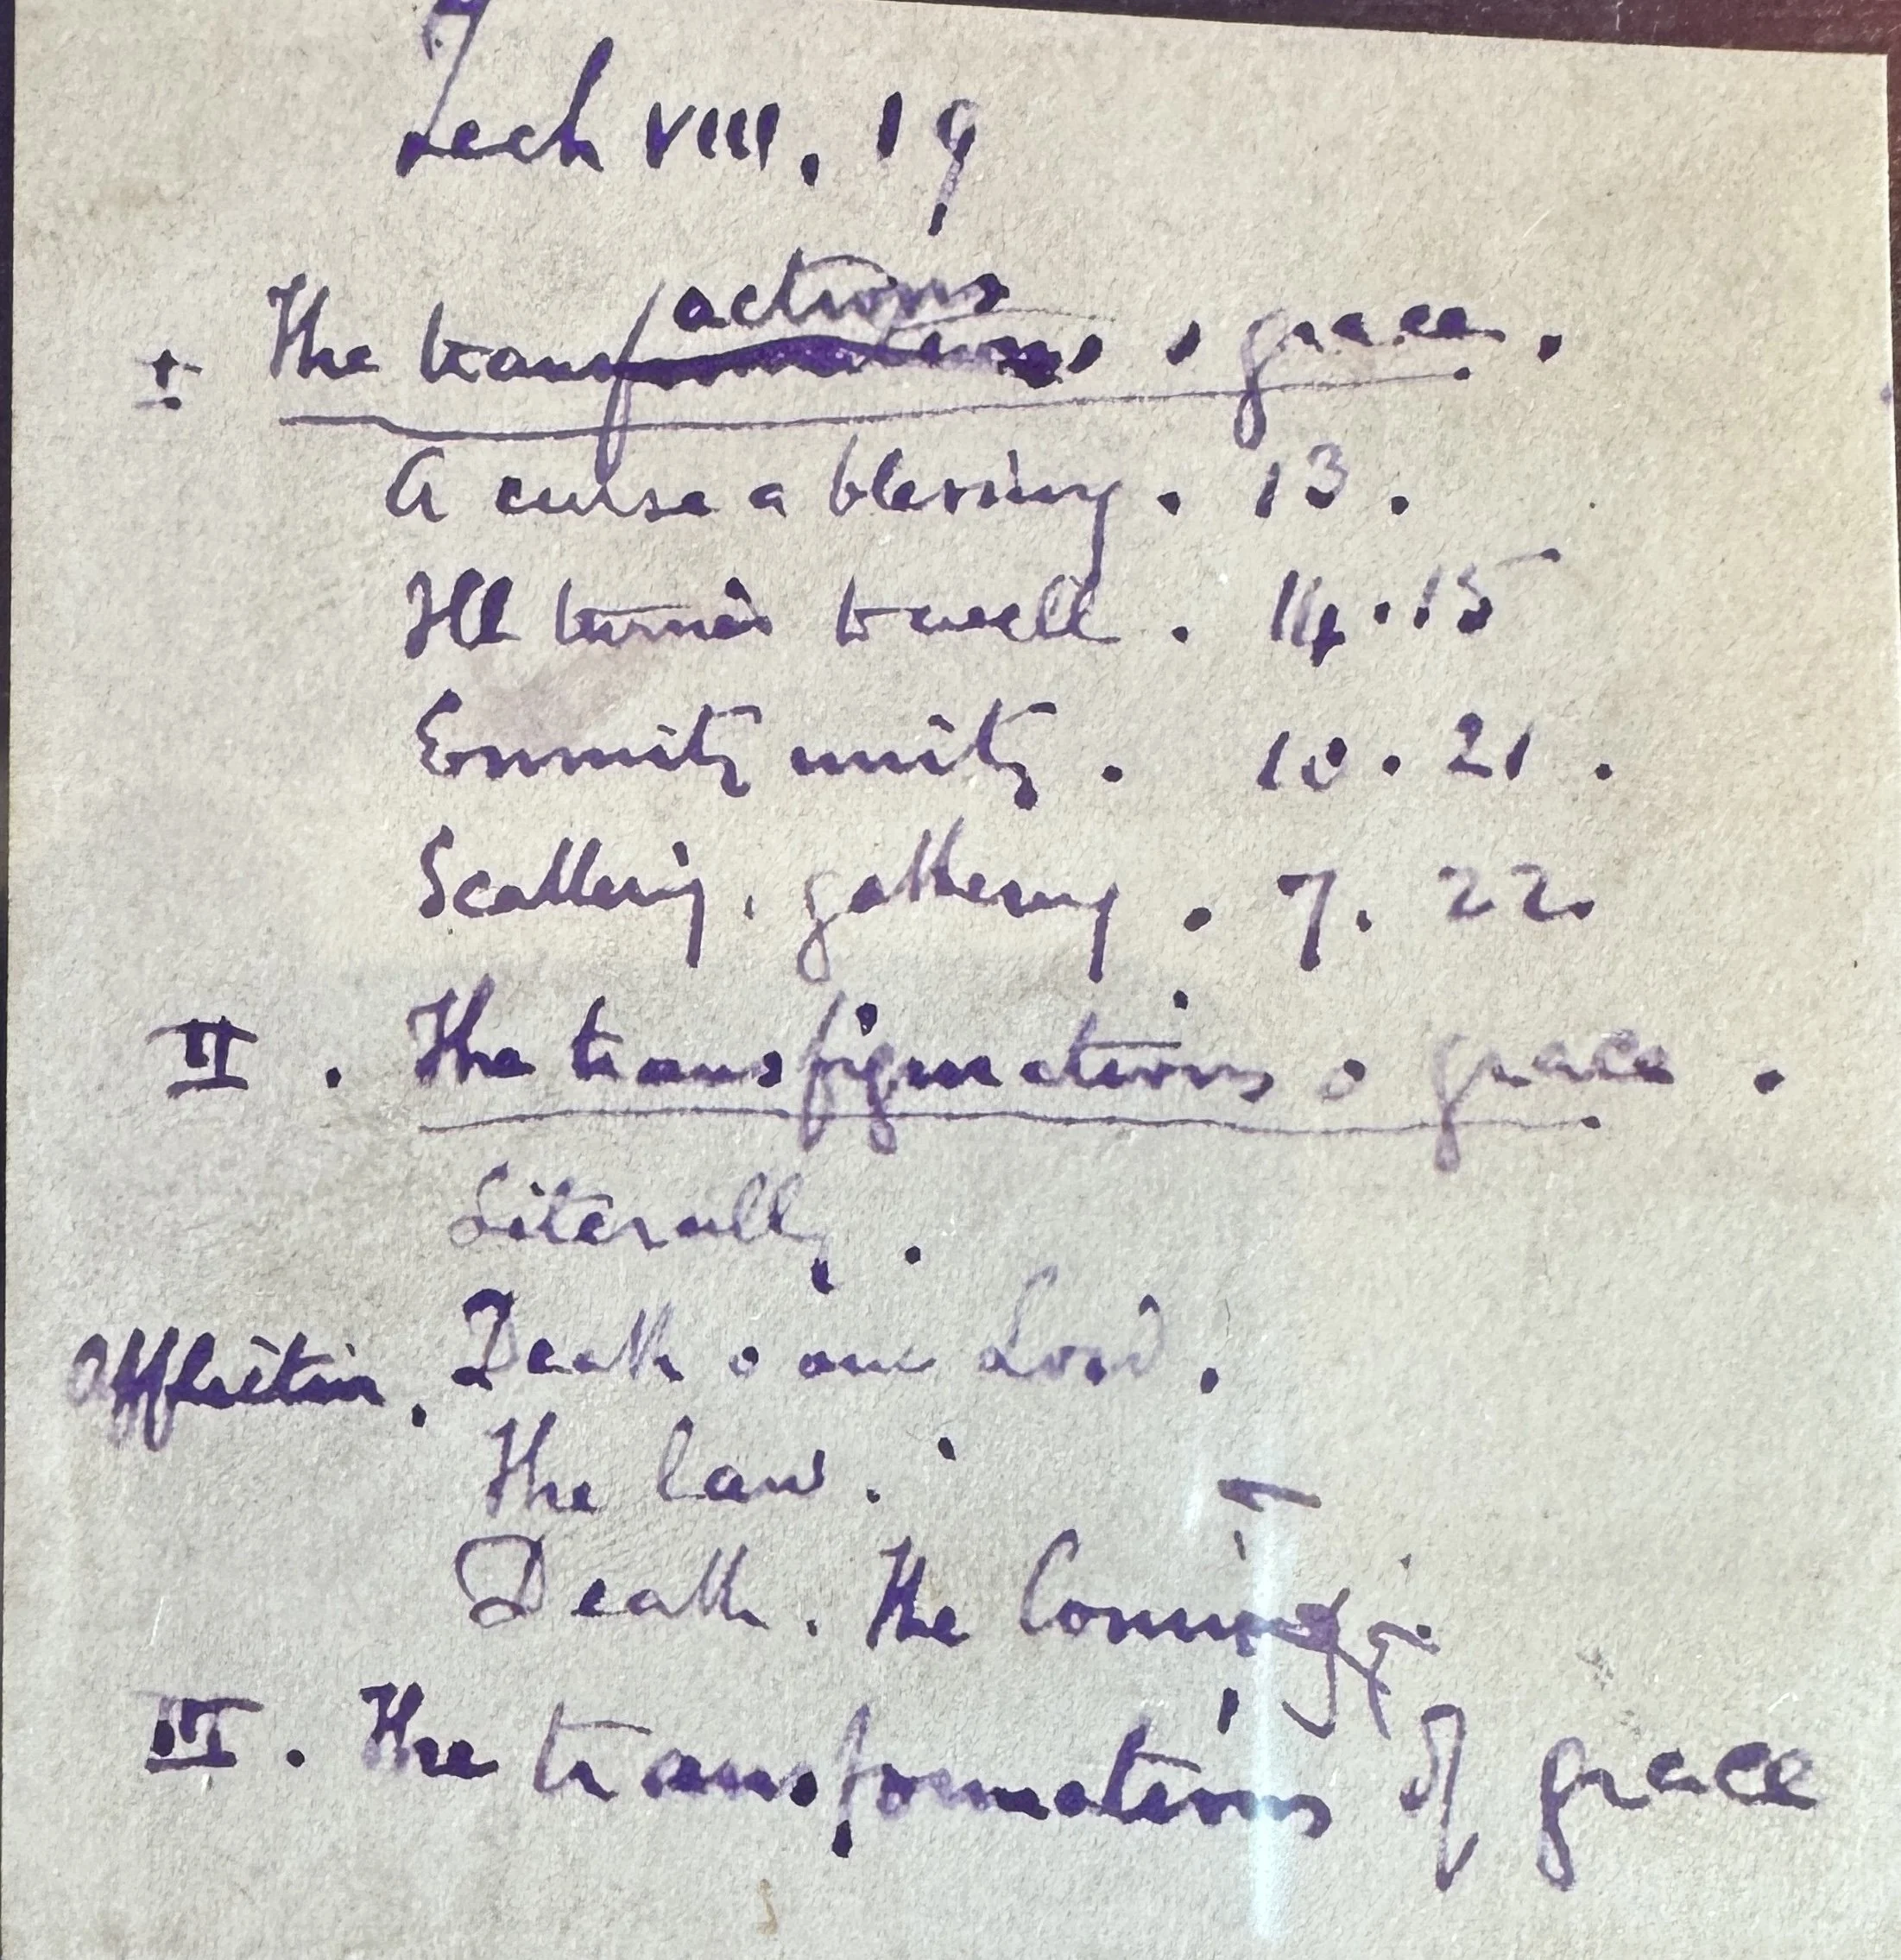 Zech VIII. 19
actions
I The transformations o grace.
A curse a blessing. 13.
Ill turned to well. 14.15
Enmity unity. 10.21.
Scattering. gathering. 7. 22.
II. The transfigurations o grace.
Literally.
Affliction. Death o our Lord.
The law.
Death. The Coming.
III. The transformations of grace